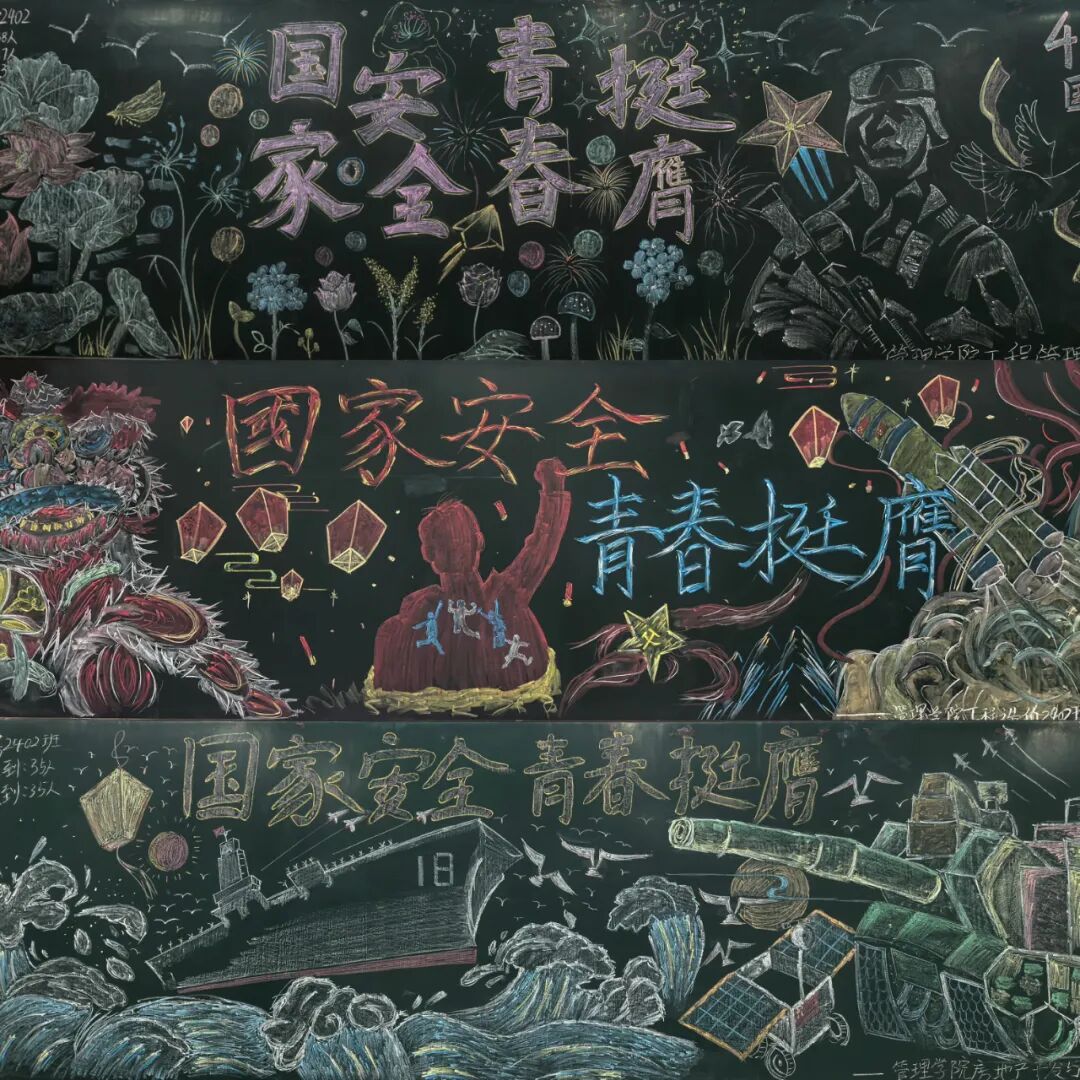 2402
8人
国家安全 青春挺膺
国
管理学院工程管理
國家安全
青春挺膺
管理学院工程造价2402
2402班
到:35人
到:35人
国家安全 青春挺膺
18
管理学院房地产